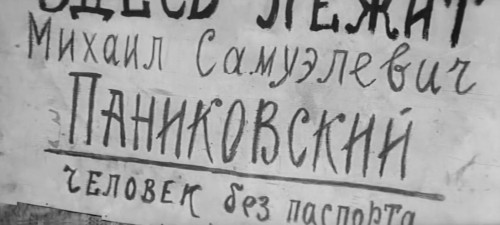 ЗДЕСЬ ЛЕЖИТ
Михаил Самуэлевич
ПАНИКОВСКИЙ
ЧЕЛОВЕК без паспорта